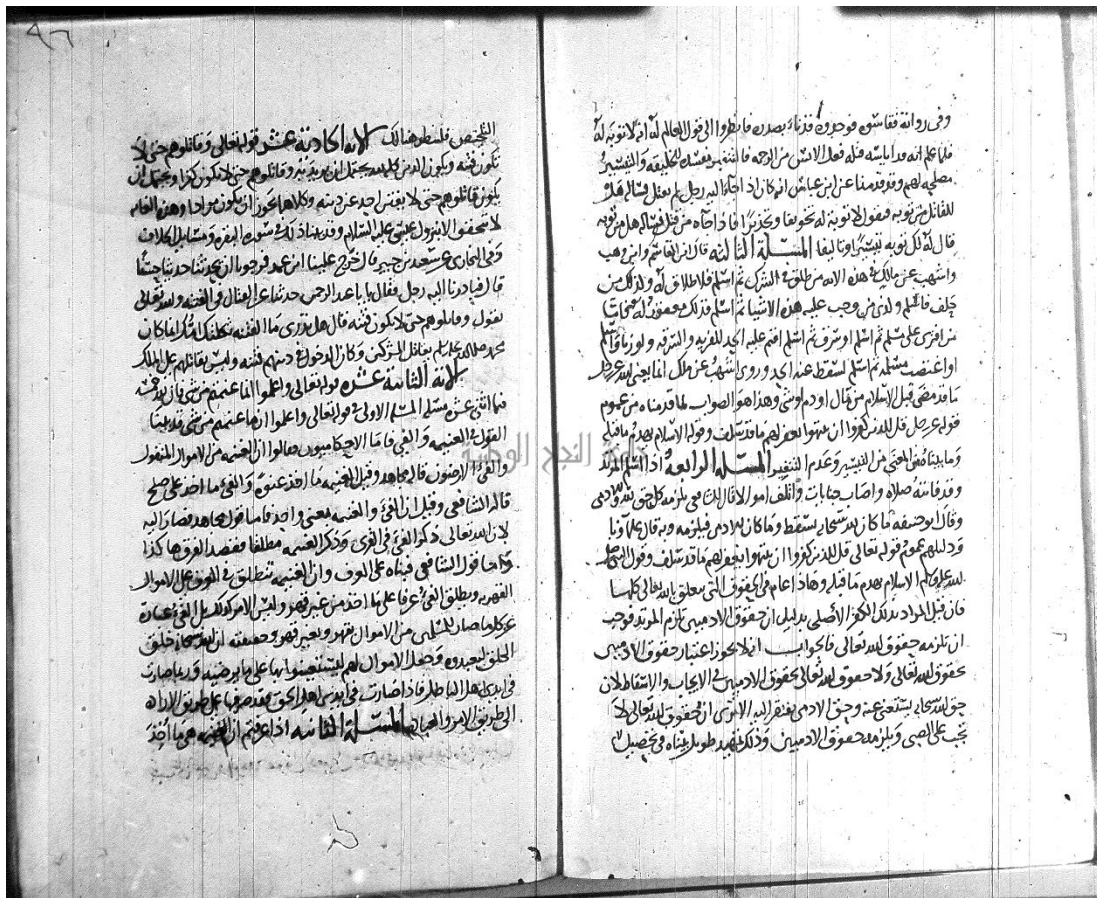 وفي رواية فقاسوه فوجدوه قد ناء بصدره فانظروا الى قول العالم له انه لا توبة له
فلما علم انه قد ايأسه قتله فعل الآيس من الرحمة فالتنفير مفسدة للخليقة والتيسير
مصلحة لهم وقد قدمنا عن ابن عباس انه كان اذا جاءه اليه رجل لم يقتل فسأله هل
للقاتل من توبة فيقول لا توبة له تخويفا وتحذيرا فاذا جاءه من قتل فسأله هل من توبة
قال له لك توبة تيسيرا وتاليفا المسئلة الثالثة قال ابن القاسم وابن وهب
واشهب عن مالك في هذه الاية من طلق في الشرك ثم اسلم فلا طلاق له وكذلك من
حلف فاسلم ولا حنث من وجب عليه هذه الاشيا ثم اسلم فذلك مغفور له فاما
من افترى على مسلم ثم اسلم او سرق ثم اسلم اقيم عليه الحد للفرية والسرقة ولو زنا واسلم
او اغتصب مسلمة ثم اسلم لسقط عنه الحد وروى اشهب عن ملك انما يعني الله عز وجل
ما قد مضى قبل الاسلام من مال او دم او شي وهذا هو الصواب لما قدمناه من عموم
قوله عز وجل قل للذين كفروا ان ينتهوا يغفر لهم ما قد سلف وقوله الاسلام يهدم ما قبله
وما بيناه من المعنى من التيسير وعدم التنفير المسئلة الرابعة اذا اسلم المرتد
وقد فاتته صلاة واصاب جنايات واتلف اموالا قال الشافعي يلزمه كل حق لله وللادمي
وقال ابو حنيفة ما كان لله سبحانه يسقط وما كان للادمي فيلزمه وبه قال علماؤنا
ودليلهم عموم قوله تعالى قل للذين كفروا ان ينتهوا يغفر لهم ما قد سلف وقول النبي صلى
الله عليه وسلم الاسلام يهدم ما قبله وهاذا عام في الحقوق التي تتعلق بالله تعالى كلها
فان قيل المراد بذلك الكفر الاصلي بدليل ان حقوق الادميين تلزم المرتد فوجب
ان تلزمه حقوق الله تعالى فالجواب انه لا يجوز اعتبار حقوق الادميين
بحقوق الله تعالى ولا حقوق الله تعالى بحقوق الادميين في الايجاب والاسقاط لان
حق الله سبحانه يستغني عنه وحق الادمي يفتقر اليه الا ترى ان حقوق الله تعالى لا
تجب على الصبي ويلزمه حقوق الادميين وذلك تمهيد طويل بيناه في تخصيص
٩٦
التلخيص فلينظر هنالك الاية الحادية عشر قوله تعالى وقاتلوهم حتى لا
تكون فتنة ويكون الدين كله لله يحتمل ان يريد به وقاتلوهم حتى لا يكون كفر ويحتمل ان
يكون قاتلوهم حتى لا يفتن احد عن دينه وكلاهما يجوز ان يكون مرادا وهذه الغاية
لا تتحقق الا بنزول عيسى عليه السلام وقد بينا ذلك في سورة البقرة ومسايل الخلاف
وفي البخاري عن سعيد بن جبير قال خرج علينا ابن عمر فرجونا ان يحدثنا حديثا حسنا
قال فبادرنا اليه رجل فقال يا ابا عبد الرحمن حدثنا عن القتال في الفتنة والله تعالى
يقول وقاتلوهم حتى لا تكون فتنة قال هل تدري ما الفتنة ثكلتك امك انما كان
محمد صلى الله عليه وسلم يقاتل المشركين وكان الدخول في دينهم فتنة وليس بقتالكم على الملك
الاية الثانية عشرة قوله تعالى واعلموا انما غنمتم من شي فان لله خمسه
فيها اثنتى عشرة مسئلة المسئلة الاولى في قوله تعالى واعلموا انما غنمتم من شي قد بينا
القول في الغنيمة والفي فاما الاحكاميون فقالوا ان الغنيمة من الاموال المنقول
والفئ الارضون قاله مجاهد وقيل الغنيمة ما اخذ عنوة والفئ ما اخذ على صلح
قاله الشافعي وقيل ان الفئ والغنيمة بمعنى واحد فاما قول مجاهد فصار اليه
لان الله تعالى ذكر الفئ في القرى وذكر الغنيمة مطلقا ففصل الفرق هاكذا
واما قول الشافعي فبناه على العرف وان الغنيمة تنطلق في العرف على الاموال
القهرية وينطلق الفئ عرفا على ما اخذ من غير قهر وليس الامر كذلك بل الفئ عبارة
عن كل ما صار للمسلمين من الاموال بقهر وبغير قهر وحقيقته ان الله سبحانه خلق
الخلق ليعبدوه وجعل الاموال لهم ليستعينوا بها على ما يرضيه وربما صارت
في ايدي اهل الباطل فاذا صارت في ايدي اهل الحق فقد صرفها عن طريق الارادة
الى طريق الامر والعبادة المسئلة الثانية اذا عرفتم ان الغنيمة هي ما اخذ
جامعة النجاح الوطنية